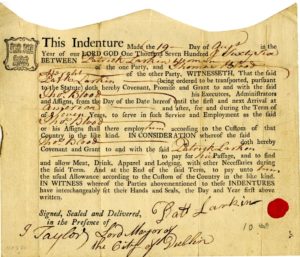 This Indenture Made the 19 Day of
Year of our LORD GOD One Thousand Seven Hundred &
BETWEEN Patrick Larkin
of the one Party, and Thomas Blood
of the other Party, WITNESSETH, That the said
Patk Larkin (being ordered to be transported, pursuant
to the Statute) doth hereby Covenant, Promise and Grant to and with the said
Thos Blood his Executors, Administrators
and Assigns, from the Day of the Date hereof until the first and next Arrival at
and after, and during the Term of
Seven Years, to serve in such Service and Employment as the said
Thos Blood
or his Assigns shall there employ him according to the Custom of that
Country in the like kind. IN CONSIDERATION whereof the said
Thos Blood doth hereby
Covenant and Grant to and with the said Patrick Larkin
to pay for his Passage, and to find
and allow Meat, Drink, Apparel and Lodging, with other Necessaries during
the said Term. And at the End of the said Term, to pay unto him
the usual Allowance according to the Custom of the Country in the like kind.
IN WITNESS whereof the Parties abovementioned to these INDENTURES
have interchangeably set their Hands and Seals, the Day and Year first above
written.
Signed, Sealed and Delivered,
in the Presence of
Patt Larkin
J Taylor Lord Mayor of
the City of Dublin